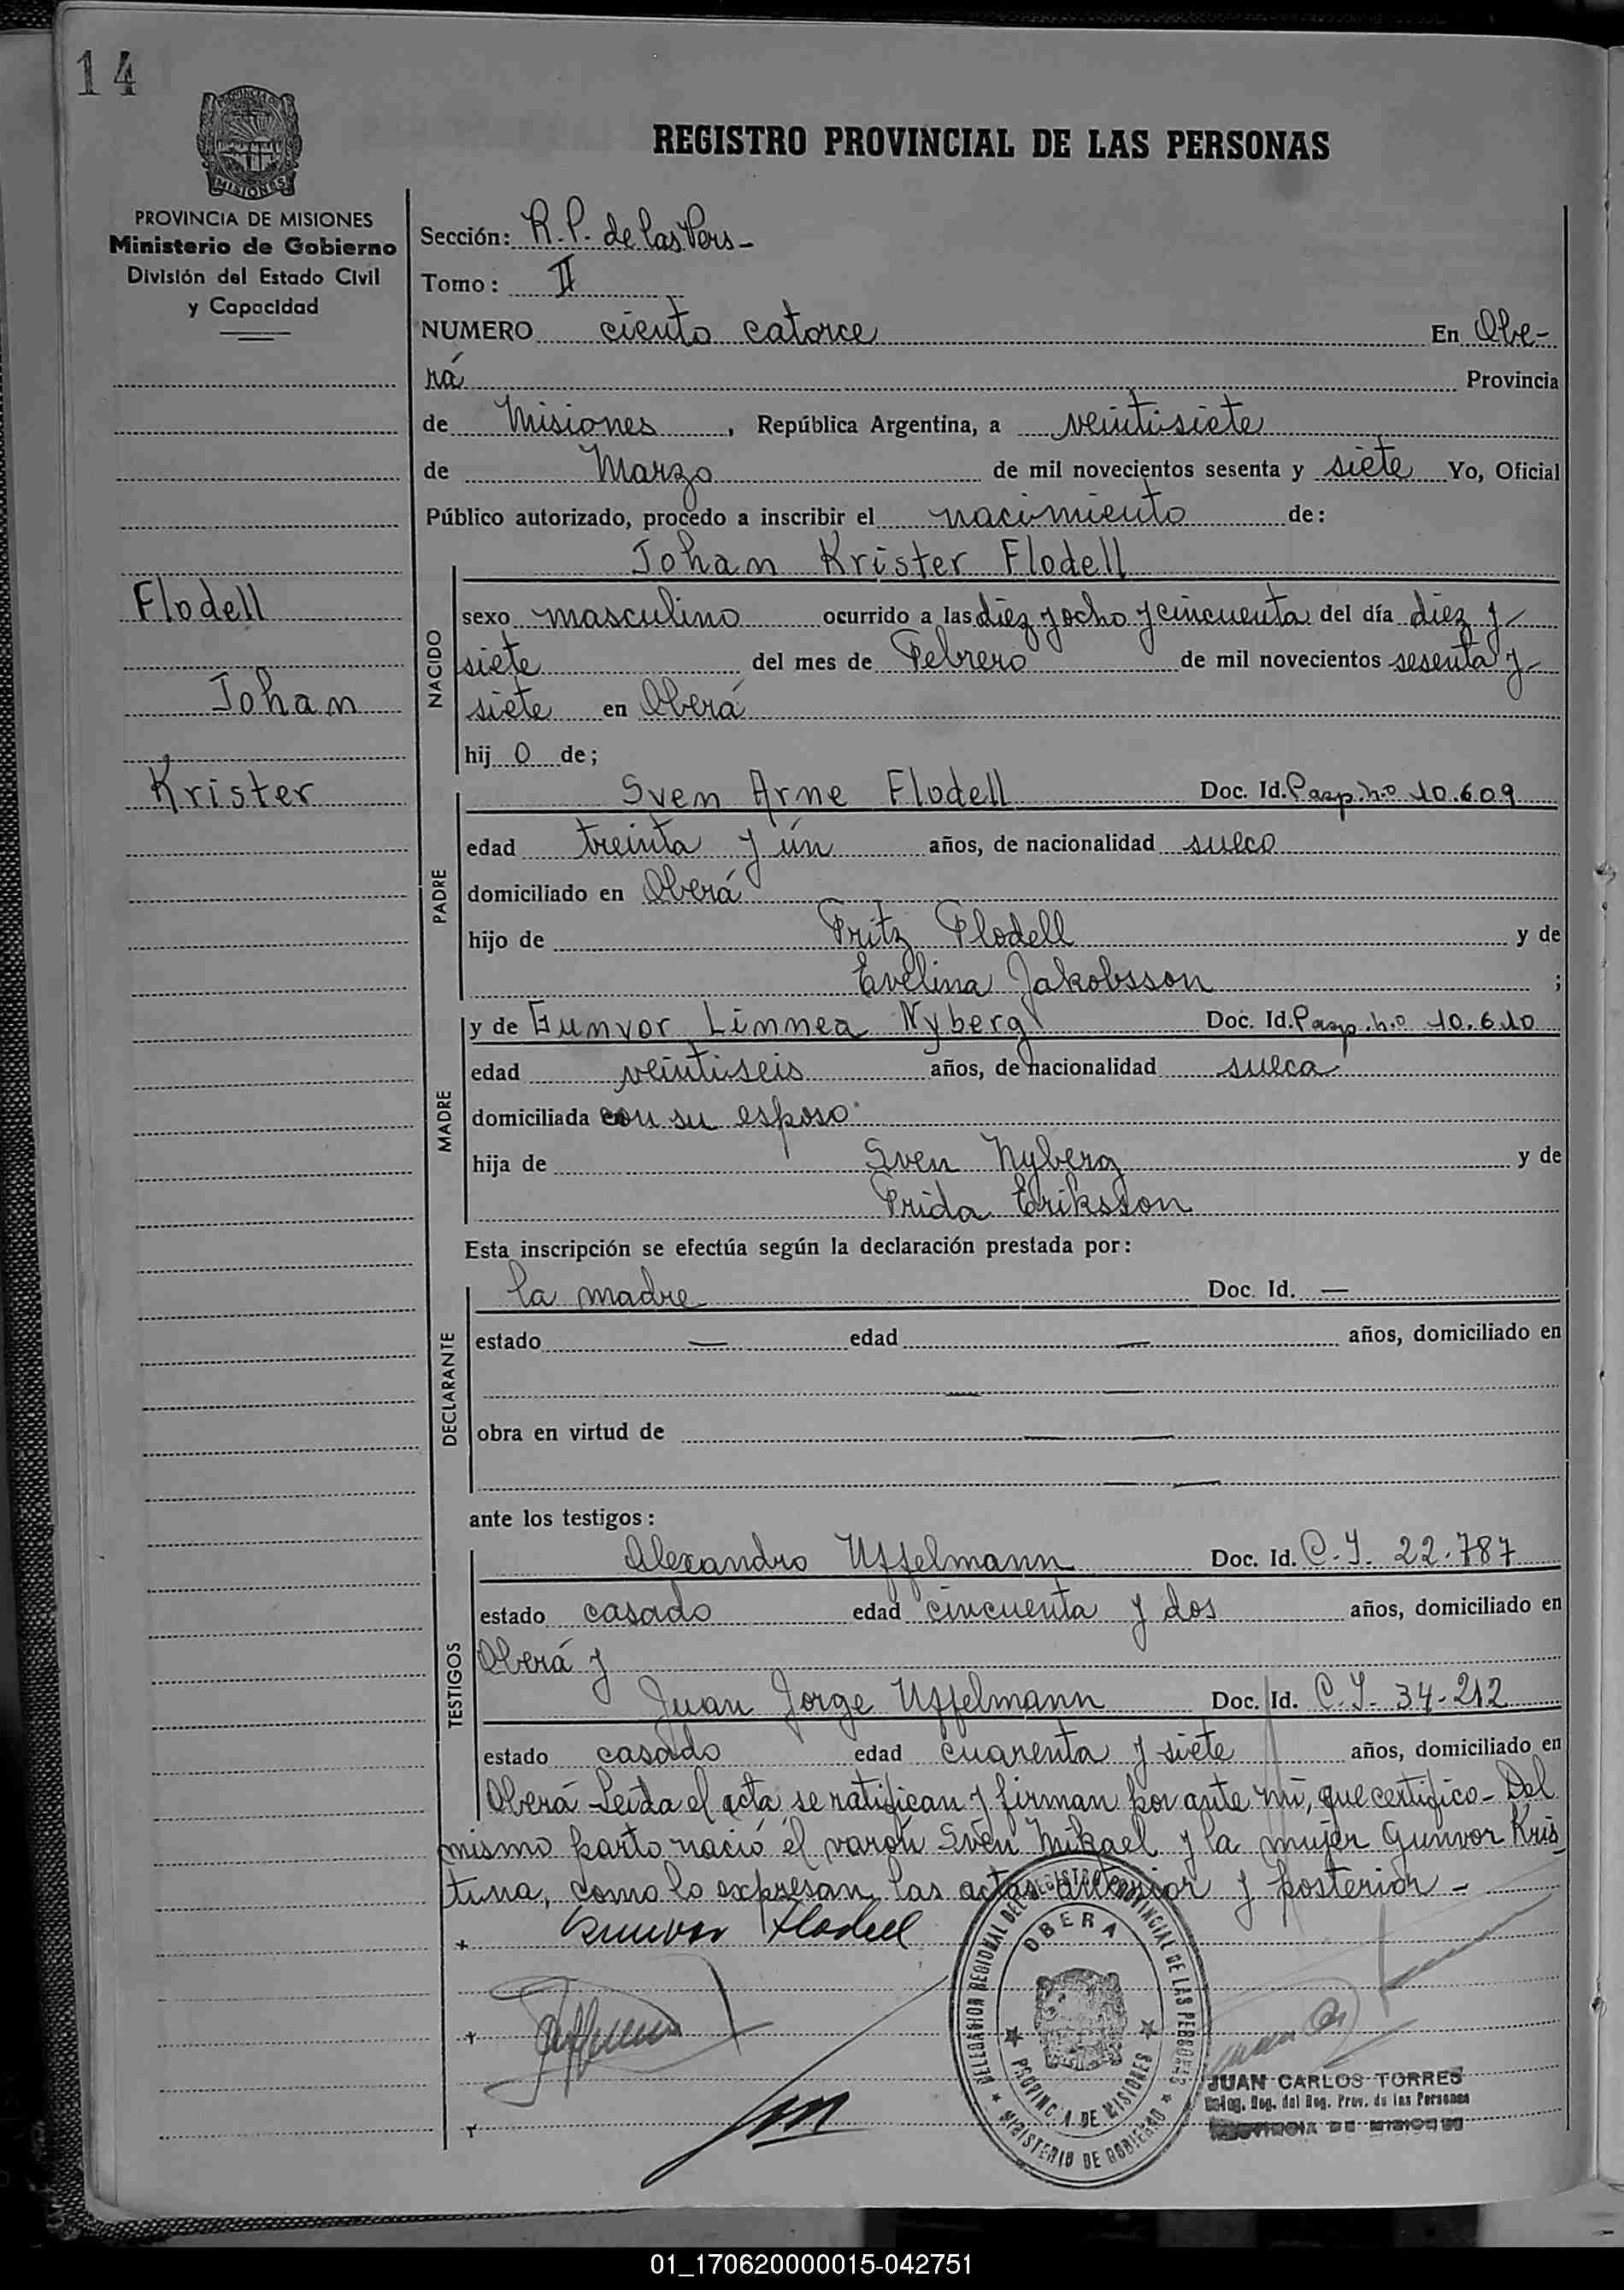 14
PROVINCIA DE MISIONES
Ministerio de Gobierno
División del Estado Civil
y Capacidad
REGISTRO PROVINCIAL DE LAS PERSONAS
Sección: R.P. de las Pers-
Tomo: II
NUMERO ciento catorce En Obe-
rá Provincia
de Misiones, República Argentina, a veintisiete
de Marzo de mil novecientos sesenta y siete Yo, Oficial
Público autorizado, procedo a inscribir el nacimiento de:
Johan Krister Flodell
Flodell
Johan
Krister
NACIDO
sexo masculino ocurrido a las diez y ocho y cincuenta del día diez y
siete del mes de Febrero de mil novecientos sesenta y
siete en Oberá
hij o de;
PADRE
Sven Arne Flodell Doc. Id. Pasp. no 10.609
edad treinta y ún años, de nacionalidad sueco
domiciliado en Oberá
hijo de Fritz Flodell y de
Evelina Jakobsson ;
MADRE
y de Gunvor Linnea Nyberg Doc. Id. Pasp. no 10.610
edad veintiseis años, de nacionalidad sueca
domiciliada con su esposo
hija de Sven Nyberg y de
Frida Eriksson
Esta inscripción se efectúa según la declaración prestada por:
DECLARANTE
la madre Doc. Id. —
estado — edad — años, domiciliado en
— —
obra en virtud de — —
—
ante los testigos:
TESTIGOS
Alexandro Uffelmann Doc. Id. C.I. 22.787
estado casado edad cincuenta y dos años, domiciliado en
Oberá y
Juan Jorge Uffelmann Doc. Id. C.I. 34.212
estado casado edad cuarenta y siete años, domiciliado en
Oberá - Leída el acta se ratifican y firman por ante mi, que certifico - Del
mismo parto nació el varón Sven Mikael y la mujer Gunvor Kris
tina, como lo expresan las actas anterior y posterior -
Gunvor Flodell
DELEGACION REGIONAL DEL REGISTRO PROVINCIAL DE LAS PERSONAS
OBERA
PROVINCIA DE MISIONES
MINISTERIO DE GOBIERNO
JUAN CARLOS TORRES
Deleg. Reg. del Reg. Prov. de las Personas
PROVINCIA DE MISIONES
01_170620000015-042751